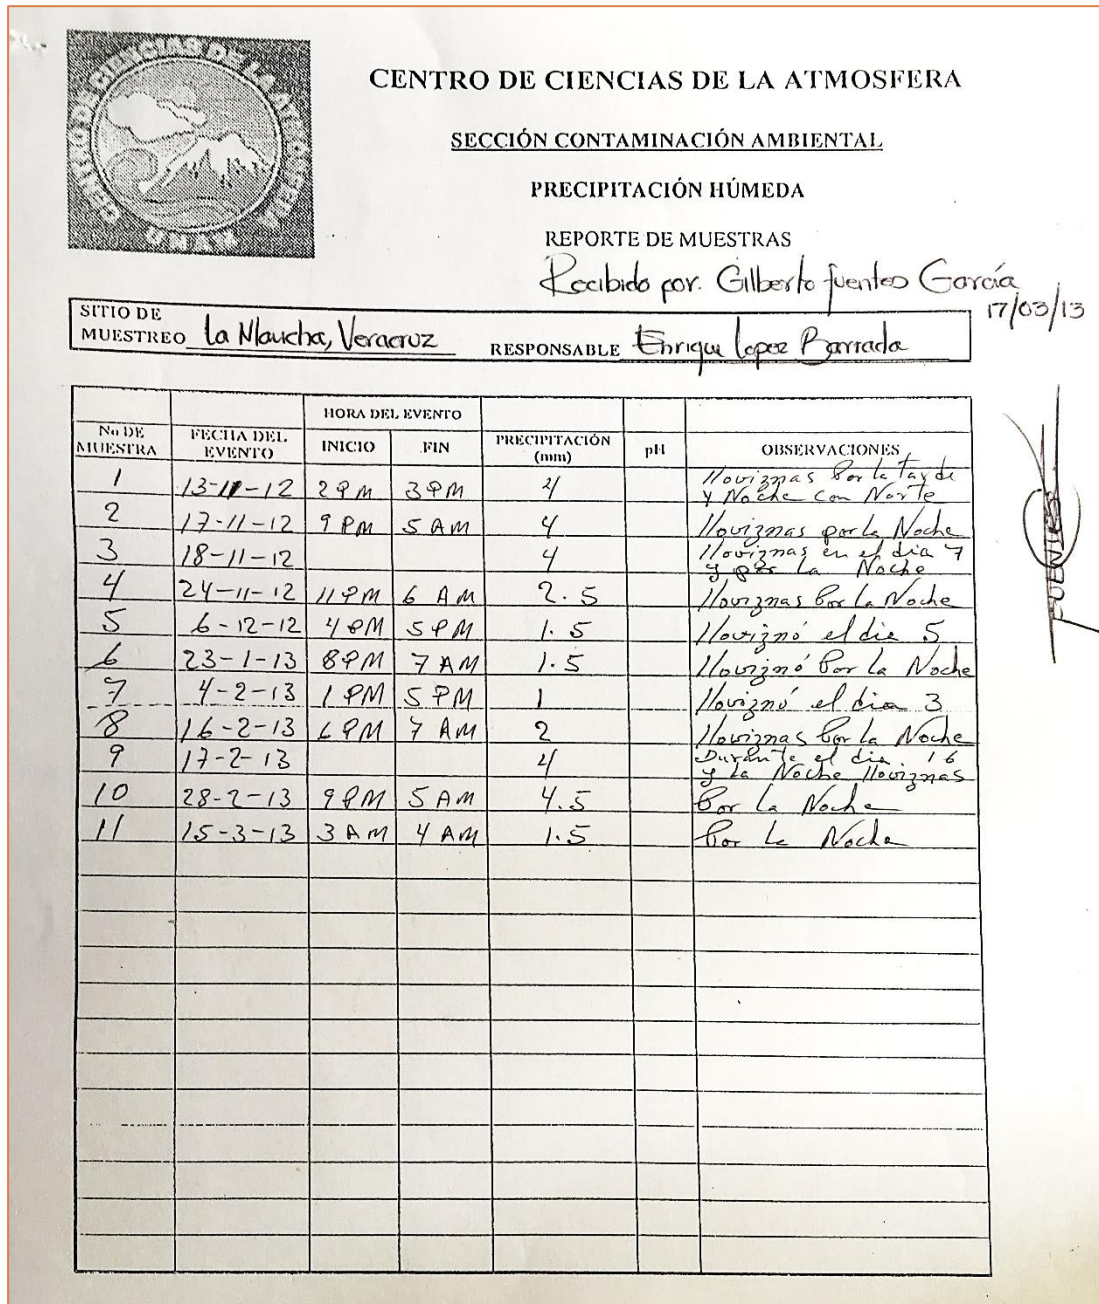 CENTRO DE CIENCIAS DE LA ATMOSFERA
UNAM
CENTRO DE CIENCIAS DE LA ATMOSFERA
SECCIÓN CONTAMINACIÓN AMBIENTAL
PRECIPITACIÓN HÚMEDA
REPORTE DE MUESTRAS
Recibido por. Gilberto fuentes García
17/03/13
SITIO DE
MUESTREO La Mancha, Veracruz RESPONSABLE Enrique Lopez Barrada
HORA DEL EVENTO
No DE MUESTRA FECHA DEL EVENTO INICIO FIN PRECIPITACIÓN (mm) pH OBSERVACIONES
1 13-11-12 2 PM 3 PM 4 lloviznas Por la tarde
y Noche con Norte
2 17-11-12 9 PM 5 AM 4 lloviznas por la Noche
3 18-11-12 4 lloviznas en el dia 7
y por la Noche
4 24-11-12 11 PM 6 AM 2.5 lloviznas Por la Noche
5 6-12-12 4 PM 5 PM 1.5 lloviznó el dia 5
6 23-1-13 8 PM 7 AM 1.5 lloviznó Por la Noche
7 4-2-13 1 PM 5 PM 1 lloviznó el dia 3
8 16-2-13 6 PM 7 AM 2 lloviznas Por la Noche
9 17-2-13 4 Durante el dia. 16
y la Noche lloviznas
10 28-2-13 9 PM 5 AM 4.5 Por la Noche
11 15-3-13 3 AM 4 AM 1.5 Por la Noche
FUENTES